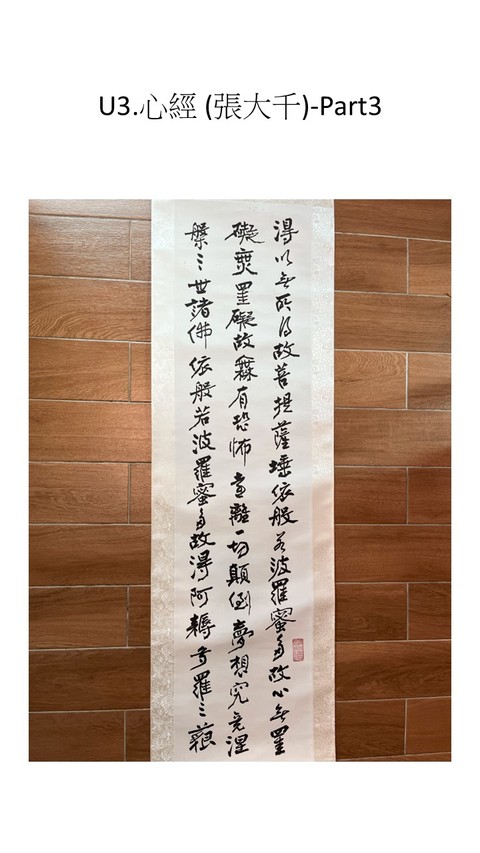 U3.心經 (張大千)-Part3
得以無所得故菩提薩埵依般若波羅蜜多故心無罣
礙無罣礙故無有恐怖遠離一切顛倒夢想究竟涅
槃三世諸佛依般若波羅蜜多故得阿耨多羅三藐